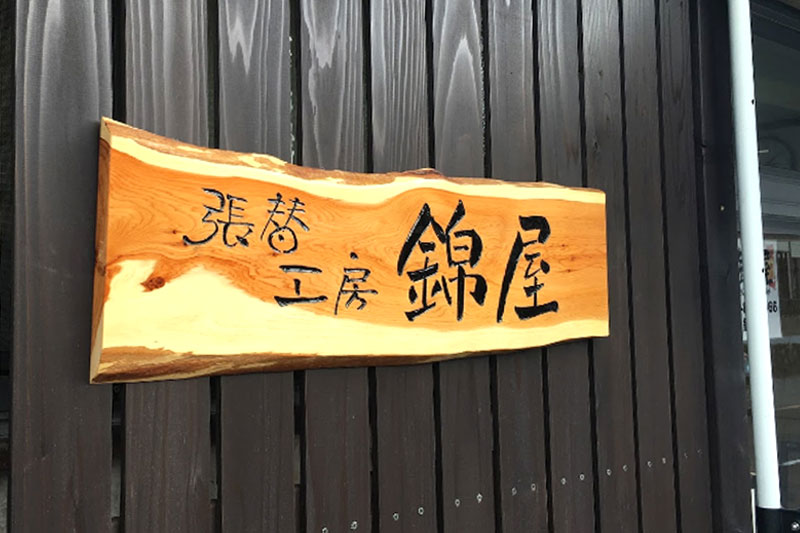 張替
工房
錦屋
66